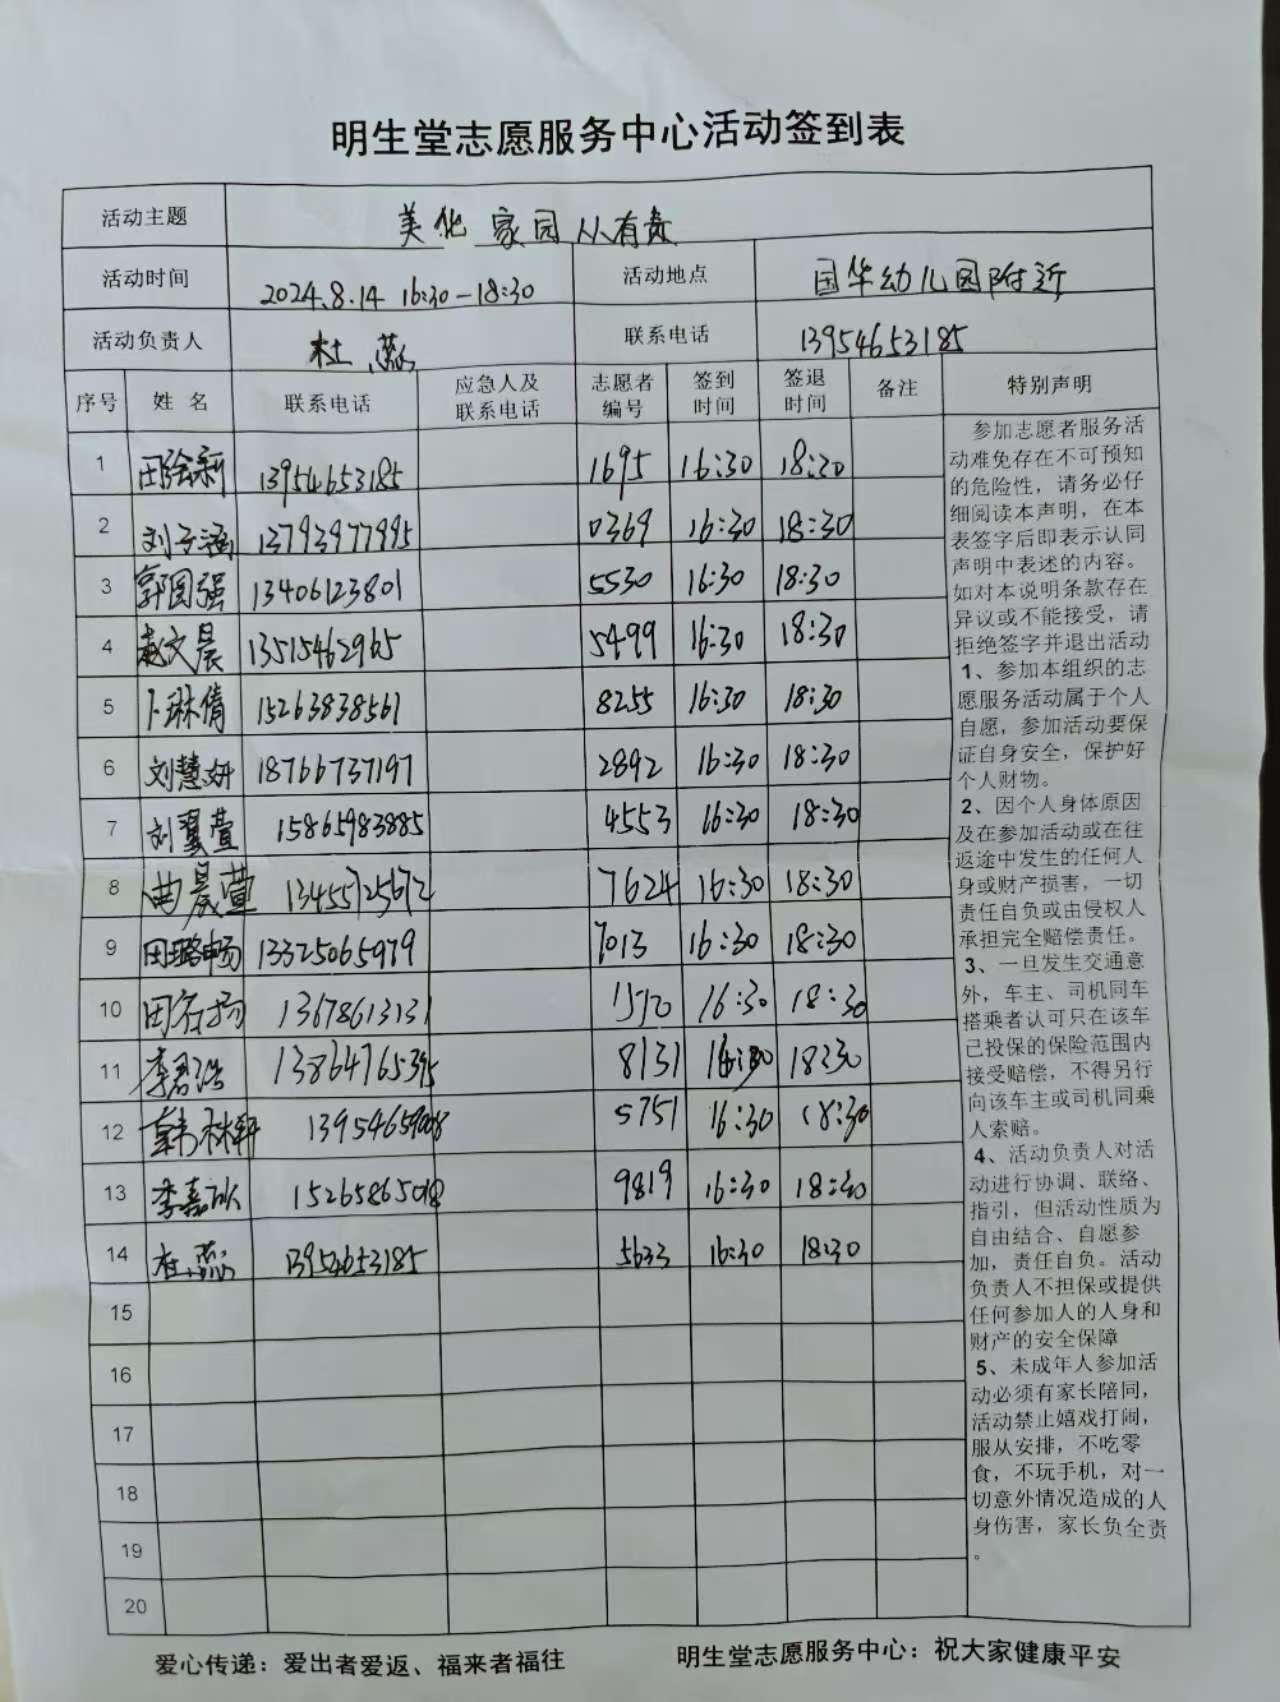 明生堂志愿服务中心活动签到表
活动主题 美化家园从有责
活动时间 2024.8.14 16:30-18:30 活动地点 国华幼儿园附近
活动负责人 杜蕊 联系电话 13954653185
序号 姓名 联系电话 应急人及联系电话 志愿者编号 签到时间 签退时间 备注 特别声明
1 田绘新 13954653185 1695 16:30 18:30
2 刘子涵 13793977995 0369 16:30 18:30
3 郭国强 13406123801 5530 16:30 18:30
4 赵文晨 13515462965 5499 16:30 18:30
5 卜琳倩 15263838561 8255 16:30 18:30
6 刘慧妍 18766737197 2892 16:30 18:30
7 刘翼萱 15865983885 4553 16:30 18:30
8 曲晨萱 13455725672 7624 16:30 18:30
9 田璐畅 13325065979 7013 16:30 18:30
10 田 13678613131 1570 16:30 18:30
11 李君浩 13864765395 8131 16:30 18:30
12 韩林轩 5751 16:30 18:30
13 李嘉 9819 16:30 18:30
14 杜蕊 13954653185 5633 16:30 18:30
15
16
17
18
19
20
参加志愿者服务活
动难免存在不可预知
的危险性，请务必仔
细阅读本声明，在本
表签字后即表示认同
声明中表述的内容。
如对本说明条款存在
异议或不能接受，请
拒绝签字并退出活动
1、参加本组织的志
愿服务活动属于个人
自愿，参加活动要保
证自身安全，保护好
个人财物。
2、因个人身体原因
及在参加活动或在往
返途中发生的任何人
身或财产损害，一切
责任自负或由侵权人
承担完全赔偿责任。
3、一旦发生交通意
外，车主、司机同车
搭乘者认可只在该车
已投保的保险范围内
接受赔偿，不得另行
向该车主或司机同乘
人索赔。
4、活动负责人对活
动进行协调、联络、
指引，但活动性质为
自由结合、自愿参
加，责任自负。活动
负责人不担保或提供
任何参加人的人身和
财产的安全保障
5、未成年人参加活
动必须有家长陪同，
活动禁止嬉戏打闹，
服从安排，不吃零
食，不玩手机，对一
切意外情况造成的人
身伤害，家长负全责
。
爱心传递：爱出者爱返、福来者福往 明生堂志愿服务中心：祝大家健康平安